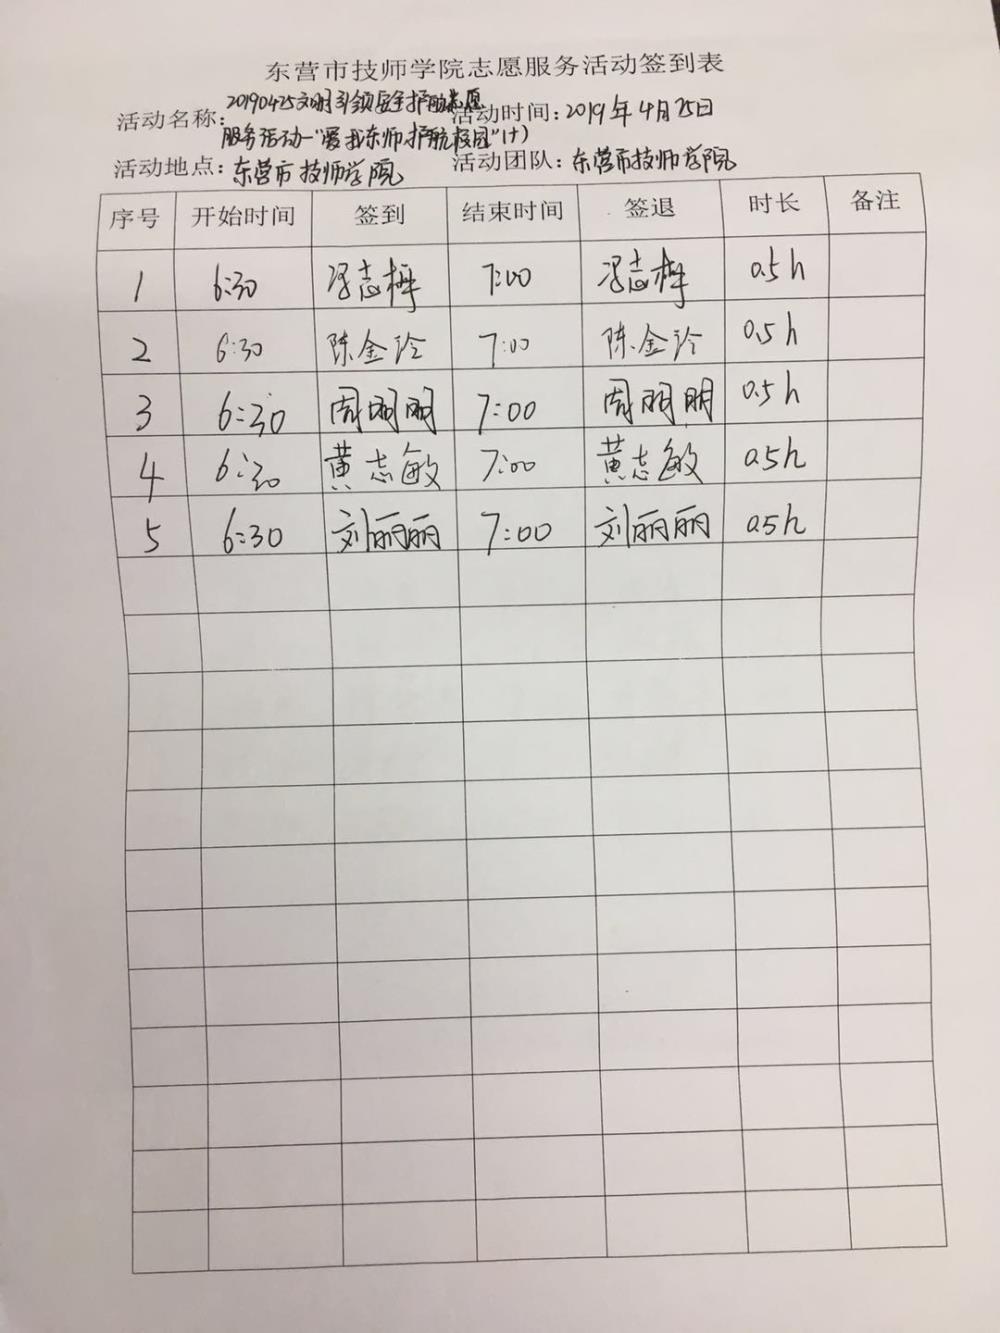 东营市技师学院志愿服务活动签到表
活动名称: 20190425文明引领安全护航志愿 活动时间: 2019年4月25日
服务活动一"爱我东师 护航校园"(十)
活动地点: 东营市技师学院 活动团队: 东营市技师学院
序号 开始时间 签到 结束时间 签退 时长 备注
1 6:30 冯志梅 7:00 冯志梅 0.5h
2 6:30 陈金玲 7:00 陈金玲 0.5h
3 6:30 周明明 7:00 周明明 0.5h
4 6:30 黄志敏 7:00 黄志敏 0.5h
5 6:30 刘丽丽 7:00 刘丽丽 0.5h